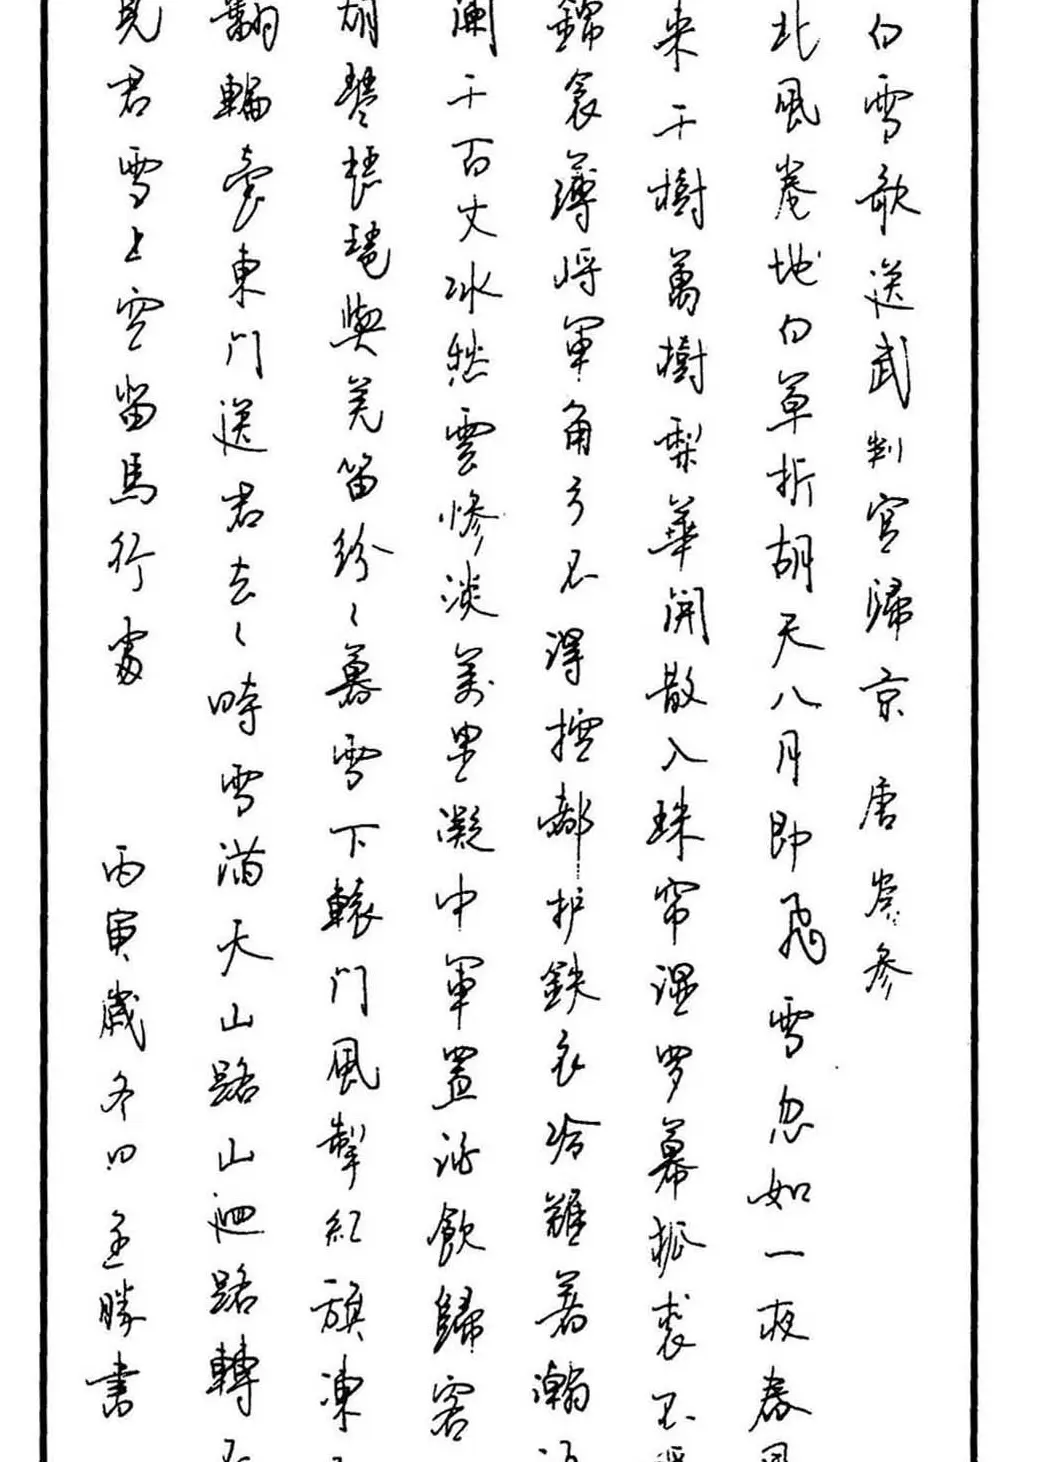 白雪歌送武判官歸京 唐 岑參
北風卷地白草折胡天八月即飛雪忽如一夜春風
來千樹萬樹梨華開散入珠帘濕罗幕狐裘不煖
錦衾薄將軍角弓不得控都护鉄衣冷難著瀚海
闌干百丈冰愁雲慘淡萬里凝中軍置酒飲歸客
胡琴琵琶與羌笛紛〻暮雪下轅門風掣紅旗凍不
翻輪臺東門送君去〻時雪滿天山路山迴路轉不
見君雪上空留馬行處
丙寅歲冬日 玉勝書